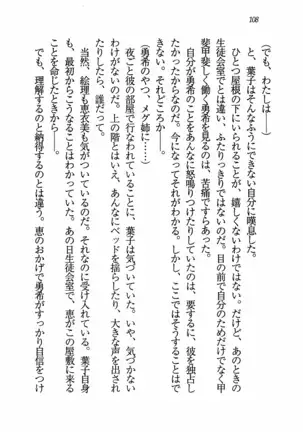 108
(でも、わたしは――)
と、葉子はそんなふうにできない自分に嘆息した。
ひとつ屋根の下にいられることが、嬉しくないわけではない。だけど、あのときの
生徒会室でとは違い、ふたりっきりではないのだ。目の前で自分のためだけでなく甲
斐甲斐しく働く勇希を見るのは、苦痛ですらあった。
自分が勇希のことをあんなに怒鳴りつけたりしていたのは、要するに、彼を独占し
たかったからなのだ。今になってそれがわかる。しかし、ここではそうすることはで
きない。それどころか――。
(勇希のやつ、メグ姉に……)
夜ごと彼の部屋でなにが行われているのか、葉子は気づいていた。いや、気づかな
いわけがないのだ。上の階とはいえ、あんなにベッドを揺らしたり、大きな声を出され
たりしたら、誰だって。
当然、絵理も恵衣美も気がついているのだ。それなのに受け入れている。葉子自身
も、最初からこうなることはわかっていた。あの日生徒会室で、恵がこの屋敷に来る
ことを命じたときから――。
でも、理解するのと納得するのとは違う。恵のおかげで勇希がすっかり自信をつけ